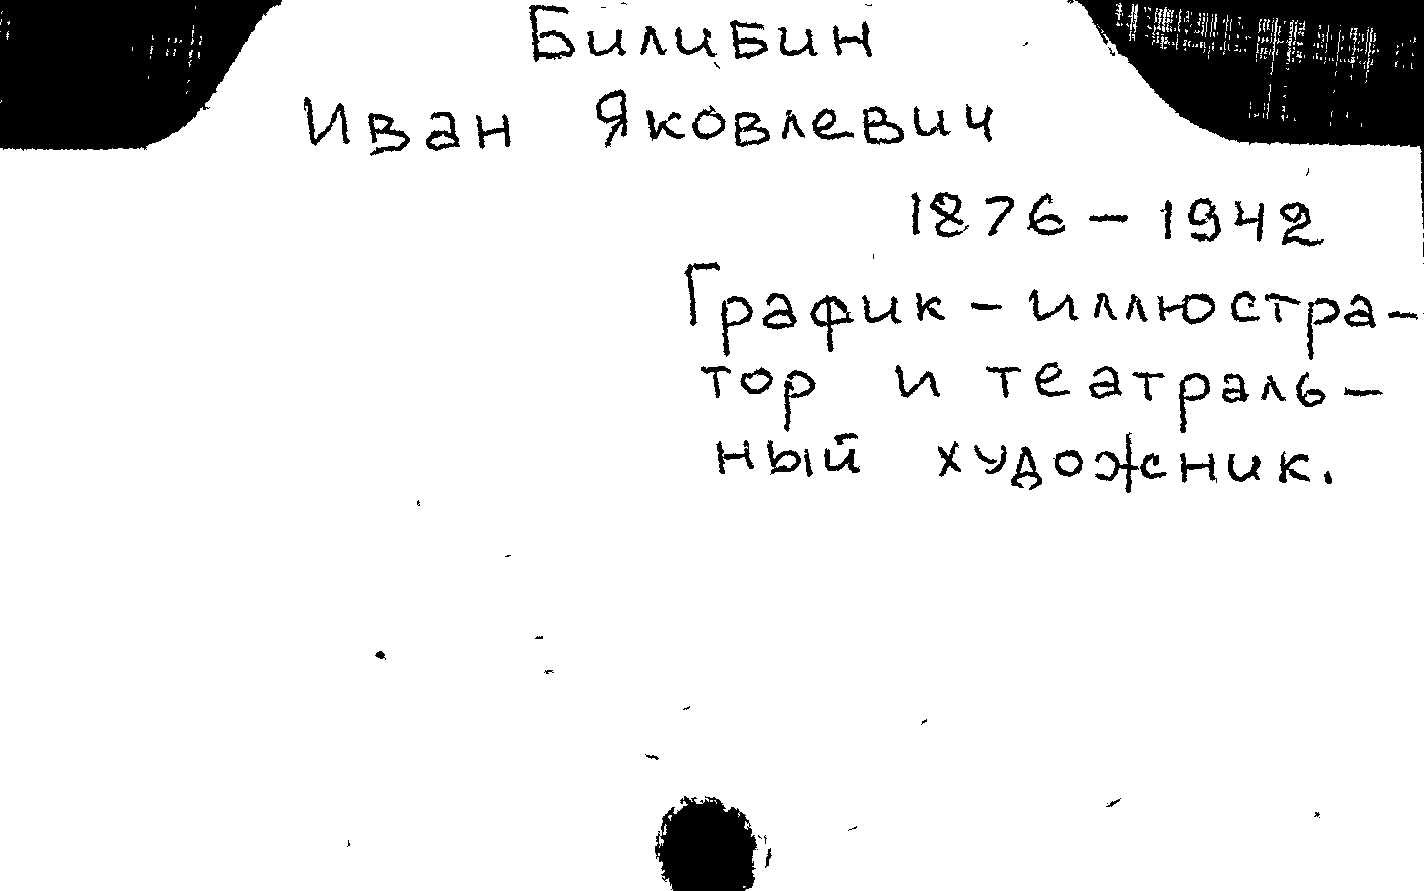 Билибин
Иван Яковлевич
1876 – 1942
График – иллюстра-
тор и театраль-
ный художник.